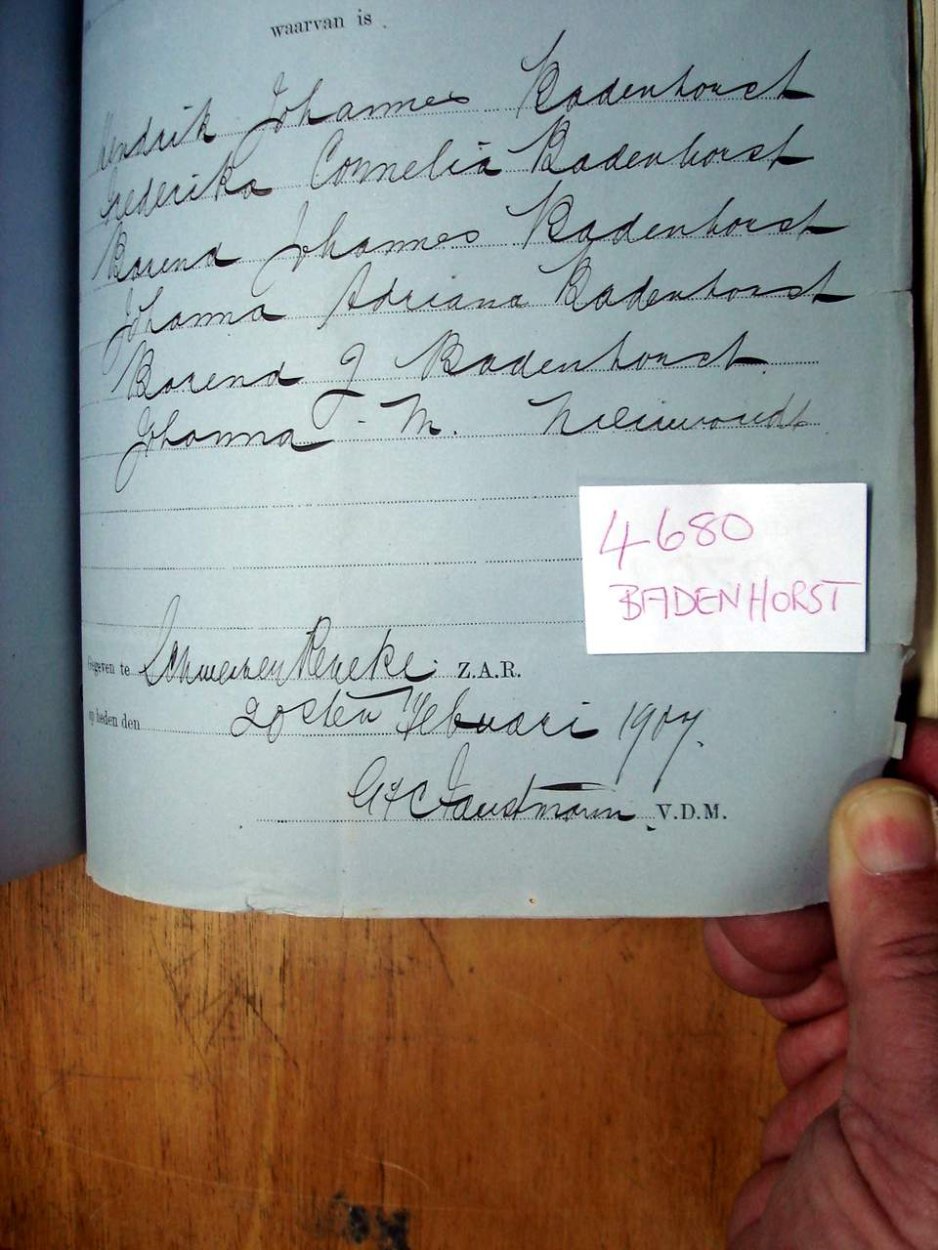 waarvan is
Hendrik Johannes Badenhorst
Frederika Cornelia Badenhorst
Barend Johannes Badenhorst
Johanna Adriana Badenhorst
Barend J Badenhorst
Johanna M. Nieuwoudt
4680
BADENHORST
Gegeven te Schweizer Reneke Z.A.R.
op heden den 20sten Februari 1907.
V.D.M.